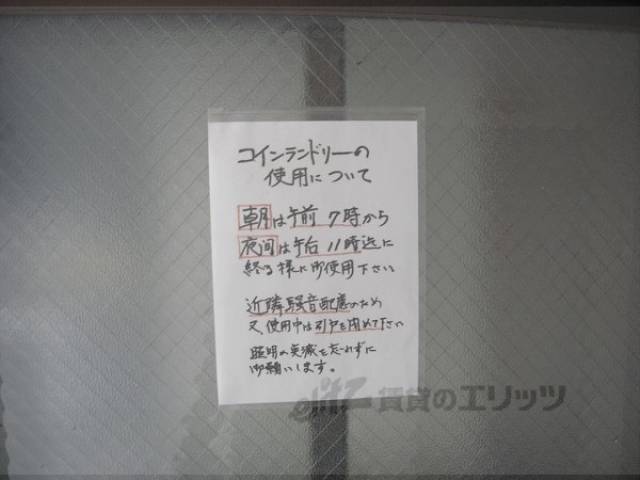 コインランドリーの
使用について
朝は午前7時から
夜间は午后11時迄に
終る様に御使用下さい
近隣騒音配慮のため
又、使用中は引戸を閉めて下さい
照明の点滅を忘れずに
御願いします。
elitz 賃貸のエリッツ